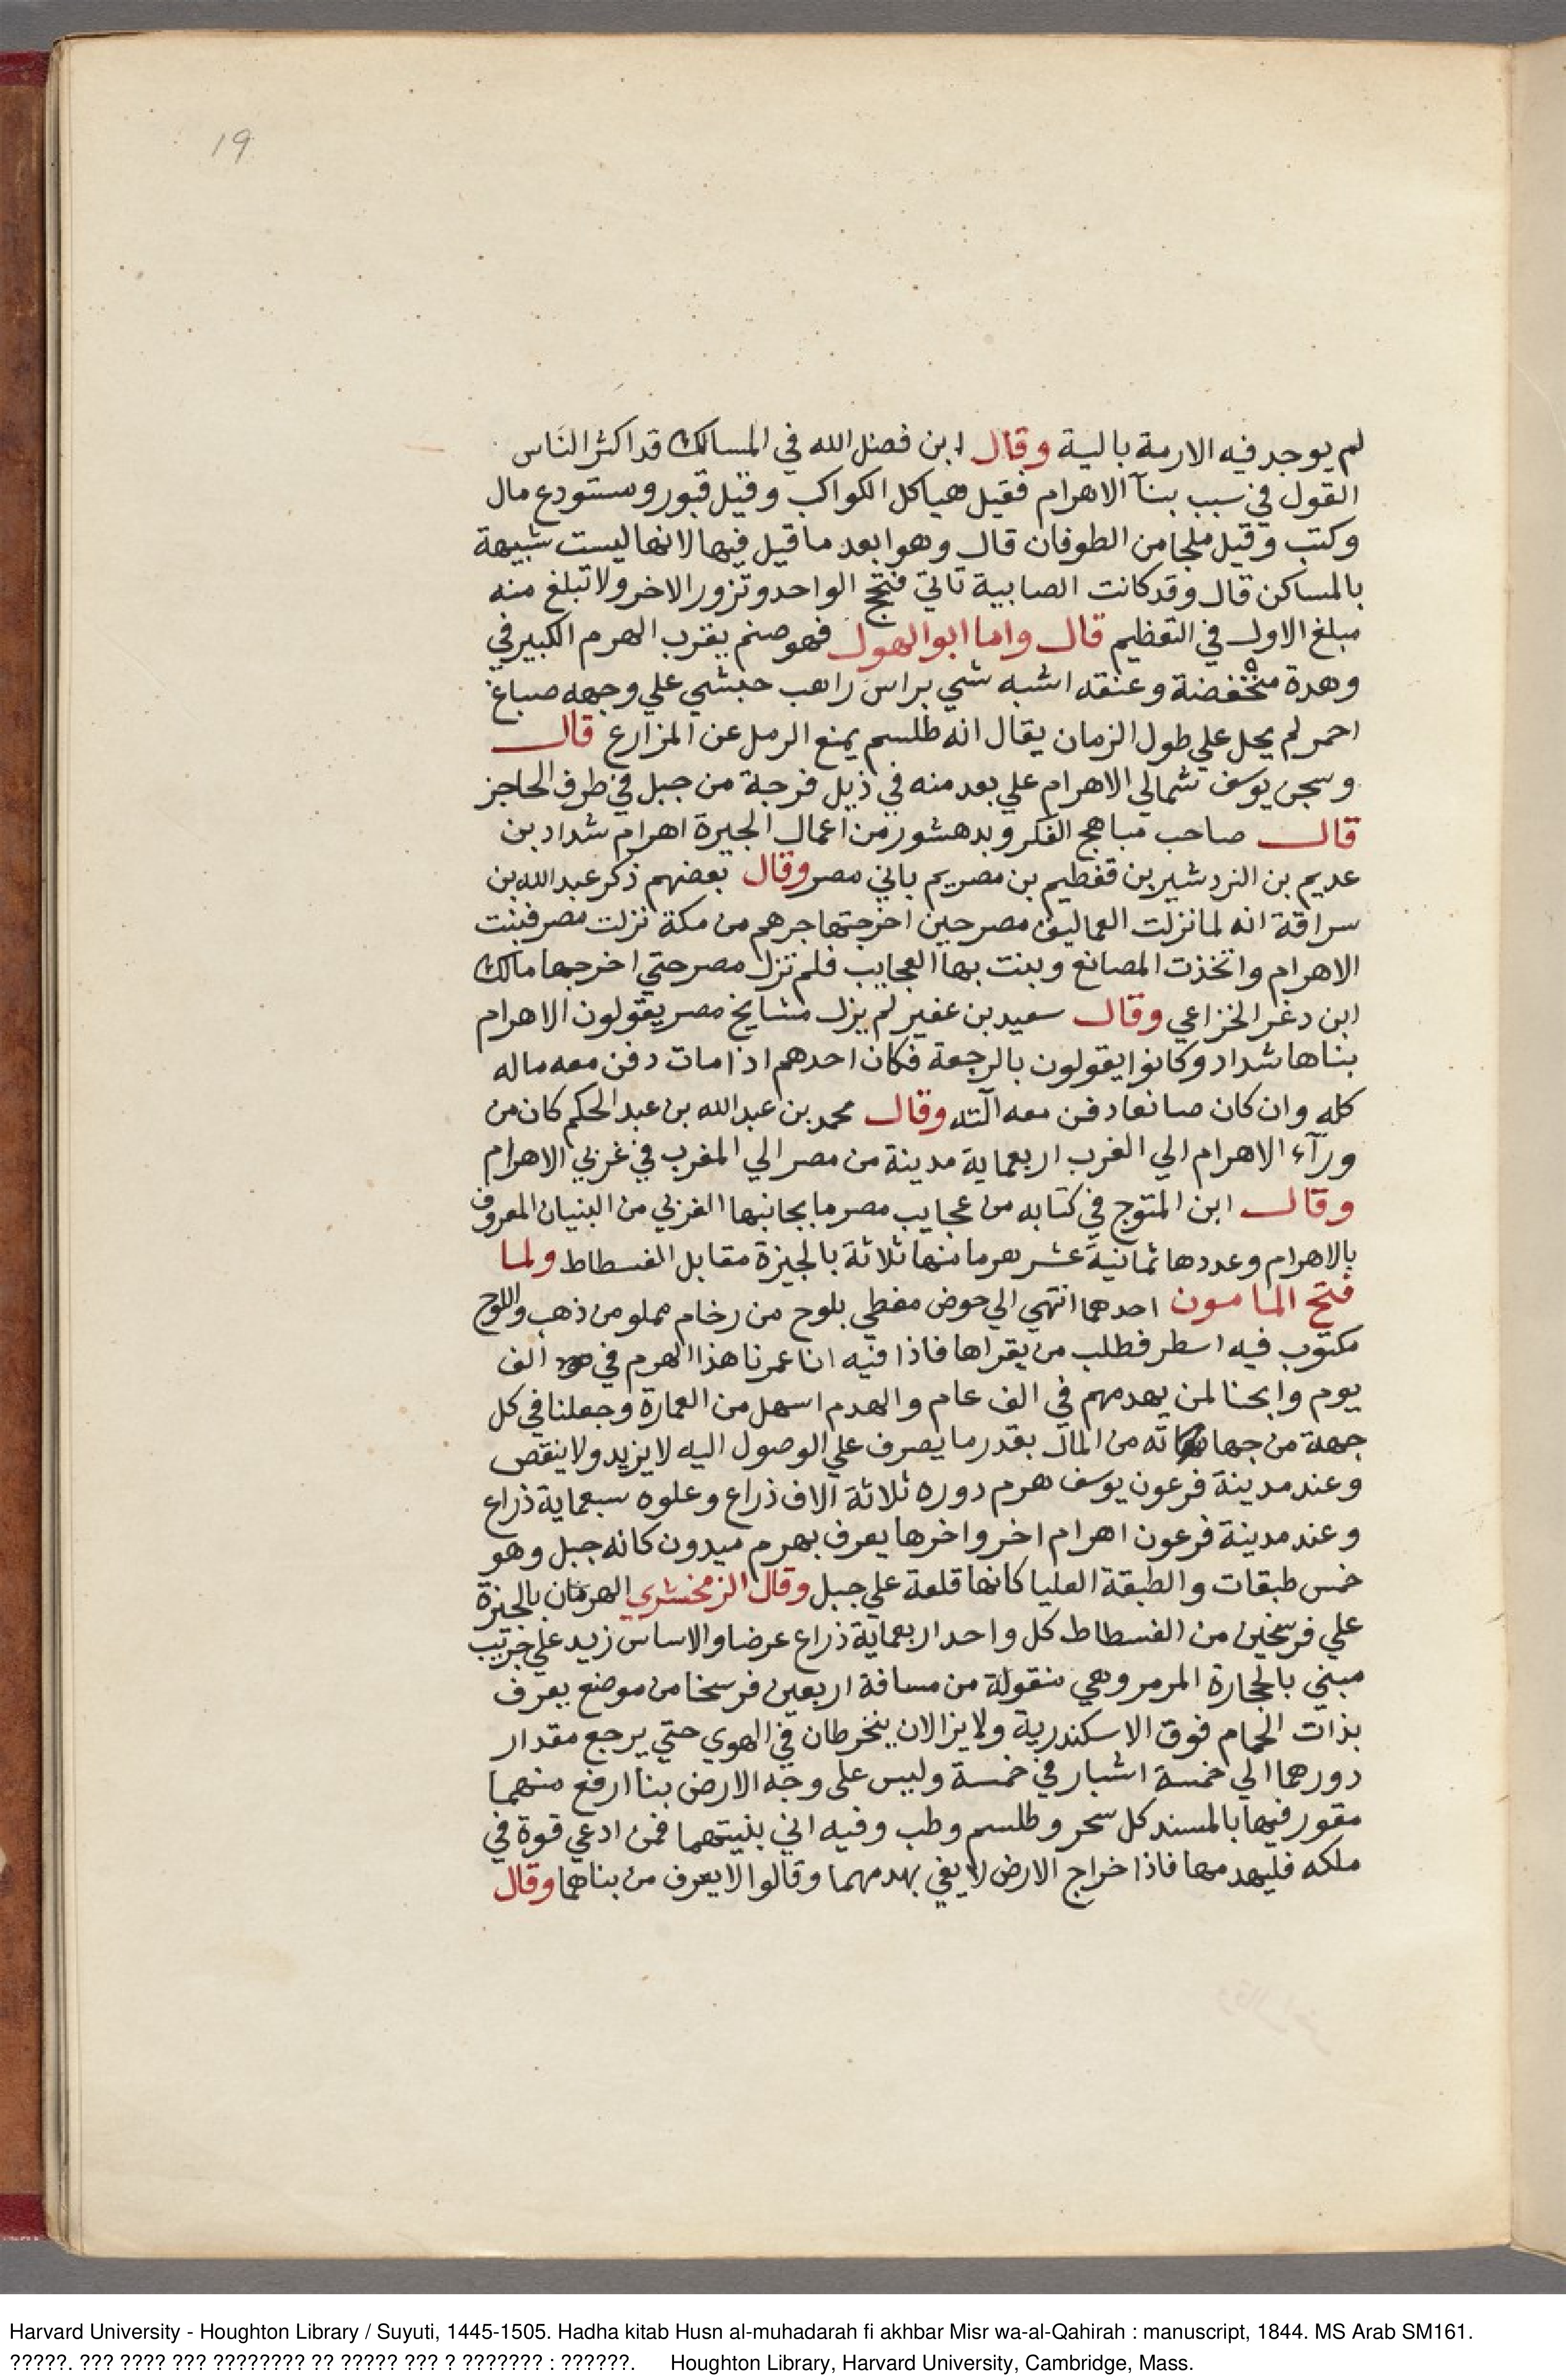 19
لم يوجد فيه الارمة بالية وقال ابن فضل الله في المسالك قد اكثر الناس
القول في سبب بنآ الاهرام فقيل هياكل الكواكب وقيل قبور ومستودع مال
وكتب وقيل ملجا من الطوفان قال وهو ابعد ما قيل فيها لانها ليست شبيهة
بالمساكن قال وقد كانت الصابية تاتي فتحج الواحد وتزور الاخر ولا تبلغ منه
مبلغ الاول في التعظيم قال واما ابو الهول فهو صنم بقرب الهرم الكبير في
وهدة منخفضة وعنقه اشبه شي براس راهب حبشي علي وجهه صباغ
احمر لم يحل علي طول الزمان يقال انه طلسم يمنع الرمل عن المزارع قال
وسجن يوسف شمالي الاهرام علي بعد منه في ذيل فرجة من جبل في طرف الحاجز
قال صاحب مباهج الفكر وبدهشور من اعمال الجيزة اهرام شداد بن
عديم بن النردشير بن قفطيم بن مصريم باني مصر وقال بعضهم ذكر عبد الله بن
سراقة انه لما نزلت العماليق مصر حين اخرجتها جرهم من مكة نزلت مصر فبنت
الاهرام واتخذت المصانع وبنت بها العجايب فلم تزل مصر حتي اخرجها مالك
ابن دغر الخزاعي وقال سعيد بن عفير لم يزل مشايخ مصر يقولون الاهرام
بناها شداد وكانوا يقولون بالرجعة فكان احدهم اذا مات دفن معه ماله
كله وان كان صانعا دفن معه آلته وقال محمد بن عبد الله بن عبد الحكم كان من
ورآء الاهرام الي الغرب اربعماية مدينة من مصر الي المغرب في غربي الاهرام
وقال ابن المتوج في كتابه من عجايب مصر ما بجانبها الغربي من البنيان المعروف
بالاهرام وعددها ثمانية عشر هرما منها ثلاثة بالجيزة مقابل الفسطاط ولما
فتح المامون احدهما انتهي الي حوض مغطي بلوح من رخام مملو من ذهب واللوح
مكتوب فيه اسطر فطلب من يقراها فاذا فيه انا عمرنا هذا الهرم في الف
يوم وابحنا لمن يهدمهم في الف عام والهدم اسهل من العمارة وجعلنا في كل
جهة من جهاته من المال بقدر ما يصرف علي الوصول اليه لا يزيد ولا ينقص
وعند مدينة فرعون يوسف هرم دوره ثلاثة الاف ذراع وعلوه سبعماية ذراع
وعند مدينة فرعون اهرام اخر واخرها يعرف بهرم ميدون كانه جبل وهو
خمس طبقات والطبقة العليا كانها قلعة علي جبل وقال الزمخشري الهرمان بالجيزة
علي فرسخين من الفسطاط كل واحد اربعماية ذراع عرضا والاساس زيد علي خريب
مبني بالحجارة المرمر وهي منقولة من مسافة اربعين فرسخا من موضع يعرف
بذات الحمام فوق الاسكندرية ولا يزالان ينخرطان في الهوي حتي يرجع مقدار
دورهما الي خمسة اشبار في خمسة وليس على وجه الارض بنا ارفع منهما
مقور فيهما بالمسند كل سحر وطلسم وطب وفيه اني بنيتهما فمن ادعي قوة في
ملكه فليهدمها فاذا خراج الارض لا يفي بهدمهما وقالوا لا يعرف من بناهما وقال
Harvard University - Houghton Library / Suyuti, 1445-1505. Hadha kitab Husn al-muhadarah fi akhbar Misr wa-al-Qahirah : manuscript, 1844. MS Arab SM161.
?????. ??? ???? ??? ???????? ?? ????? ??? ? ??????? : ??????. Houghton Library, Harvard University, Cambridge, Mass.